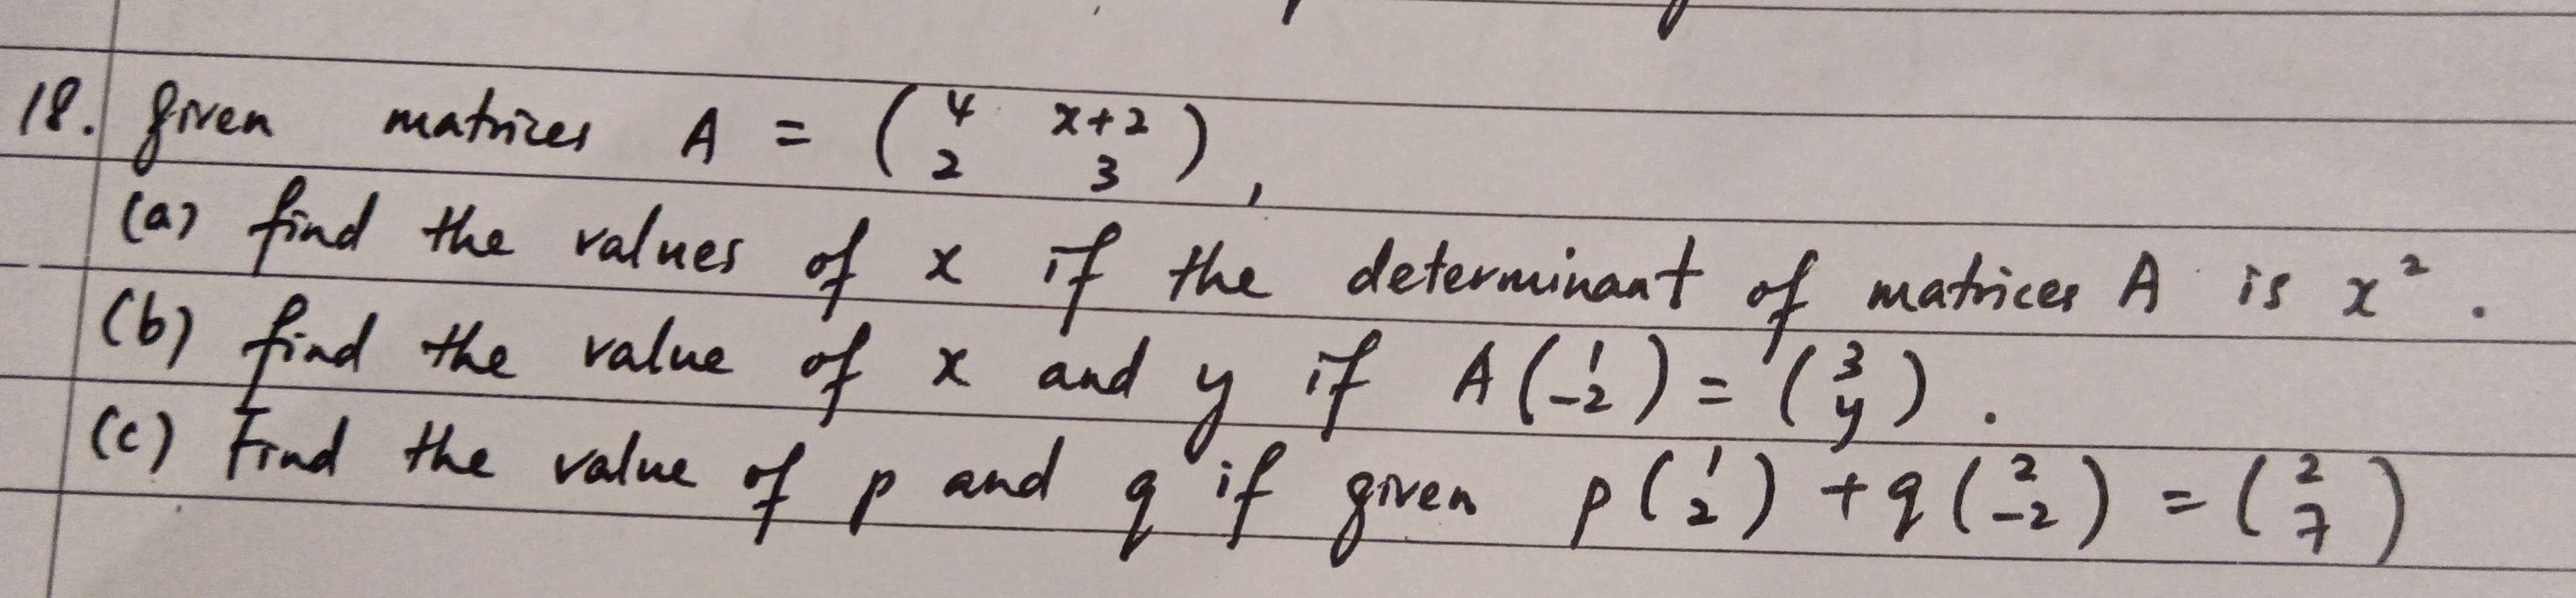 18. Given matrices A = ( 4 x+2 )
( 2 3 ) ,
(a) find the values of x if the determinant of matrices A is x².
(b) find the value of x and y if A ( 1 -2 ) = ( 3 y ) .
(c) Find the value of p and q if given p ( 1 2 ) + q ( 2 -2 ) = ( 2 7 )